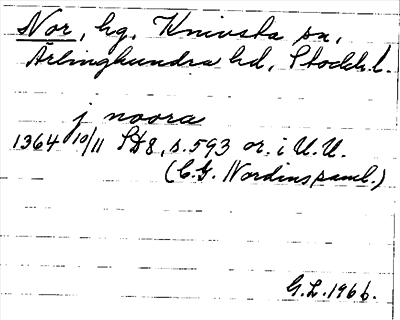 Nor, hg. Knivsta sn,
Ärlinghundra hd, Stockh. l.
j noora
1364 10/11 SD8, s. 593 or. i U.U.
(C.G. Nordins saml.)
G.L. 1966.